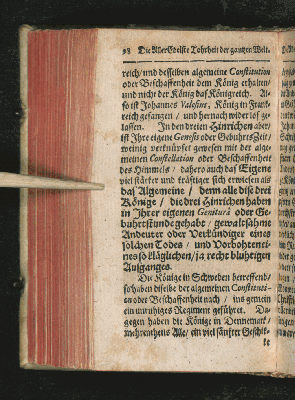 98 Die AllerEdelste Tohrheit der gantzen Welt.
reich/und desselben algemeine Constitution
oder Beschaffenheit dem König erhalten/
und nicht der König das Königreich. Al-
so ist Johannes Valesius, König in Frank-
reich gefangen / und hernach wieder los ge-
lassen. In den dreien Hinrichen aber/
ist Jhre eigene Genesis oder GebuhrtsZeit/
weinig verknüpfet gewesen mit der alge-
meinen Constellation oder Beschaffenheit
des Himmels / dahero auch das Eigene
viel stärker und kräftiger sich erwiesen als
das Algemeine / denn alle dise drei
Könige / die drei Hinrichen haben
in Jhrer eigenen Genitura oder Ge-
buhrtsstunde gehabt / gewaltsahme
Andeuter oder Verkündiger eines
solchen Todes / und Vorbohtenei-
nes so kläglichen / ja recht bluhtigen
Ausganges.
Die Könige in Schweden betreffend/
so haben diselbe der algemeinen Constituti-
on oder Beschaffenheit nach / ins gemein
ein unruhiges Regiment geführet. Da-
gegen haben die Könige in Dennemark/
mehrentheils Alle/ ein viel sänfter Geschik-
ke